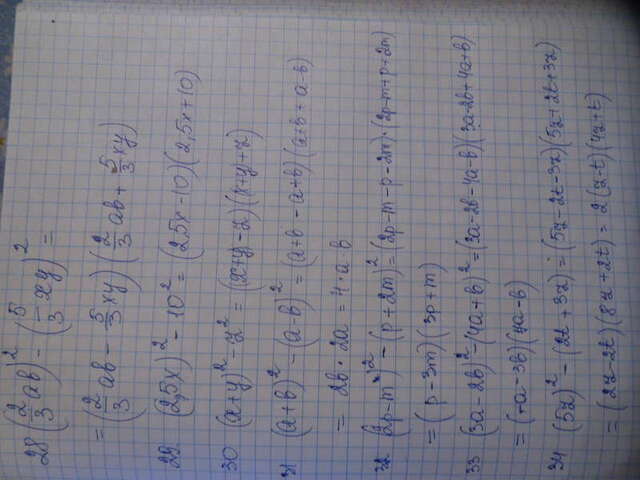 28 (2/3 ab)² - (5/3 xy)² =
= (2/3 ab - 5/3 xy)(2/3 ab + 5/3 xy)
29 (2,5x)² - 10² = (2,5x - 10)(2,5x + 10)
30 (x+y)² - z² = (x+y-z)(x+y+z)
31 (a+b)² - (a-b)² = (a+b-a+b)(a+b+a-b)
= 2b · 2a = 4 · a b
32 (2p-m)² - (p+2m)² = (2p-m-p-2m)·(2p-m+p+2m)
= (p-3m)(3p+m)
33 (3a-2b)² - (4a+b)² = (3a-2b-4a-b)(3a-2b+4a+b)
= (-a-3b)(7a-b)
34 (5z)² - (2t+3z)² = (5z-2t-3z)(5z+2t+3z)
= (2z-2t)(8z-2t) = 2(z-t)(4z+t)